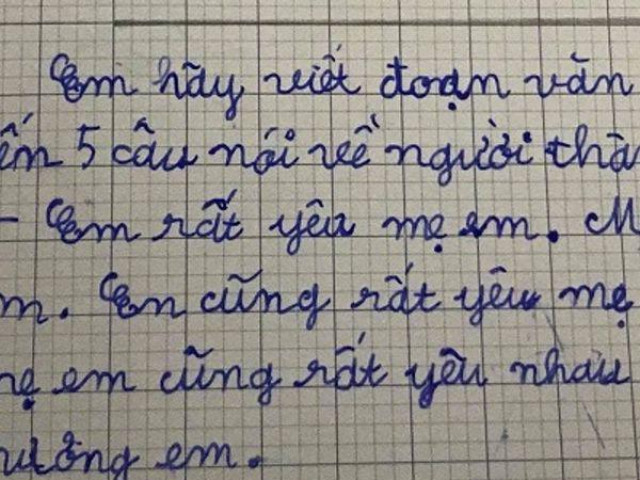 Em hãy viết đoạn văn
ến 5 câu nói về người thâ
- Em rất yêu mẹ em. M
m. Em cũng rất yêu mẹ
mẹ em cũng rất yêu nhau
ưởng em.